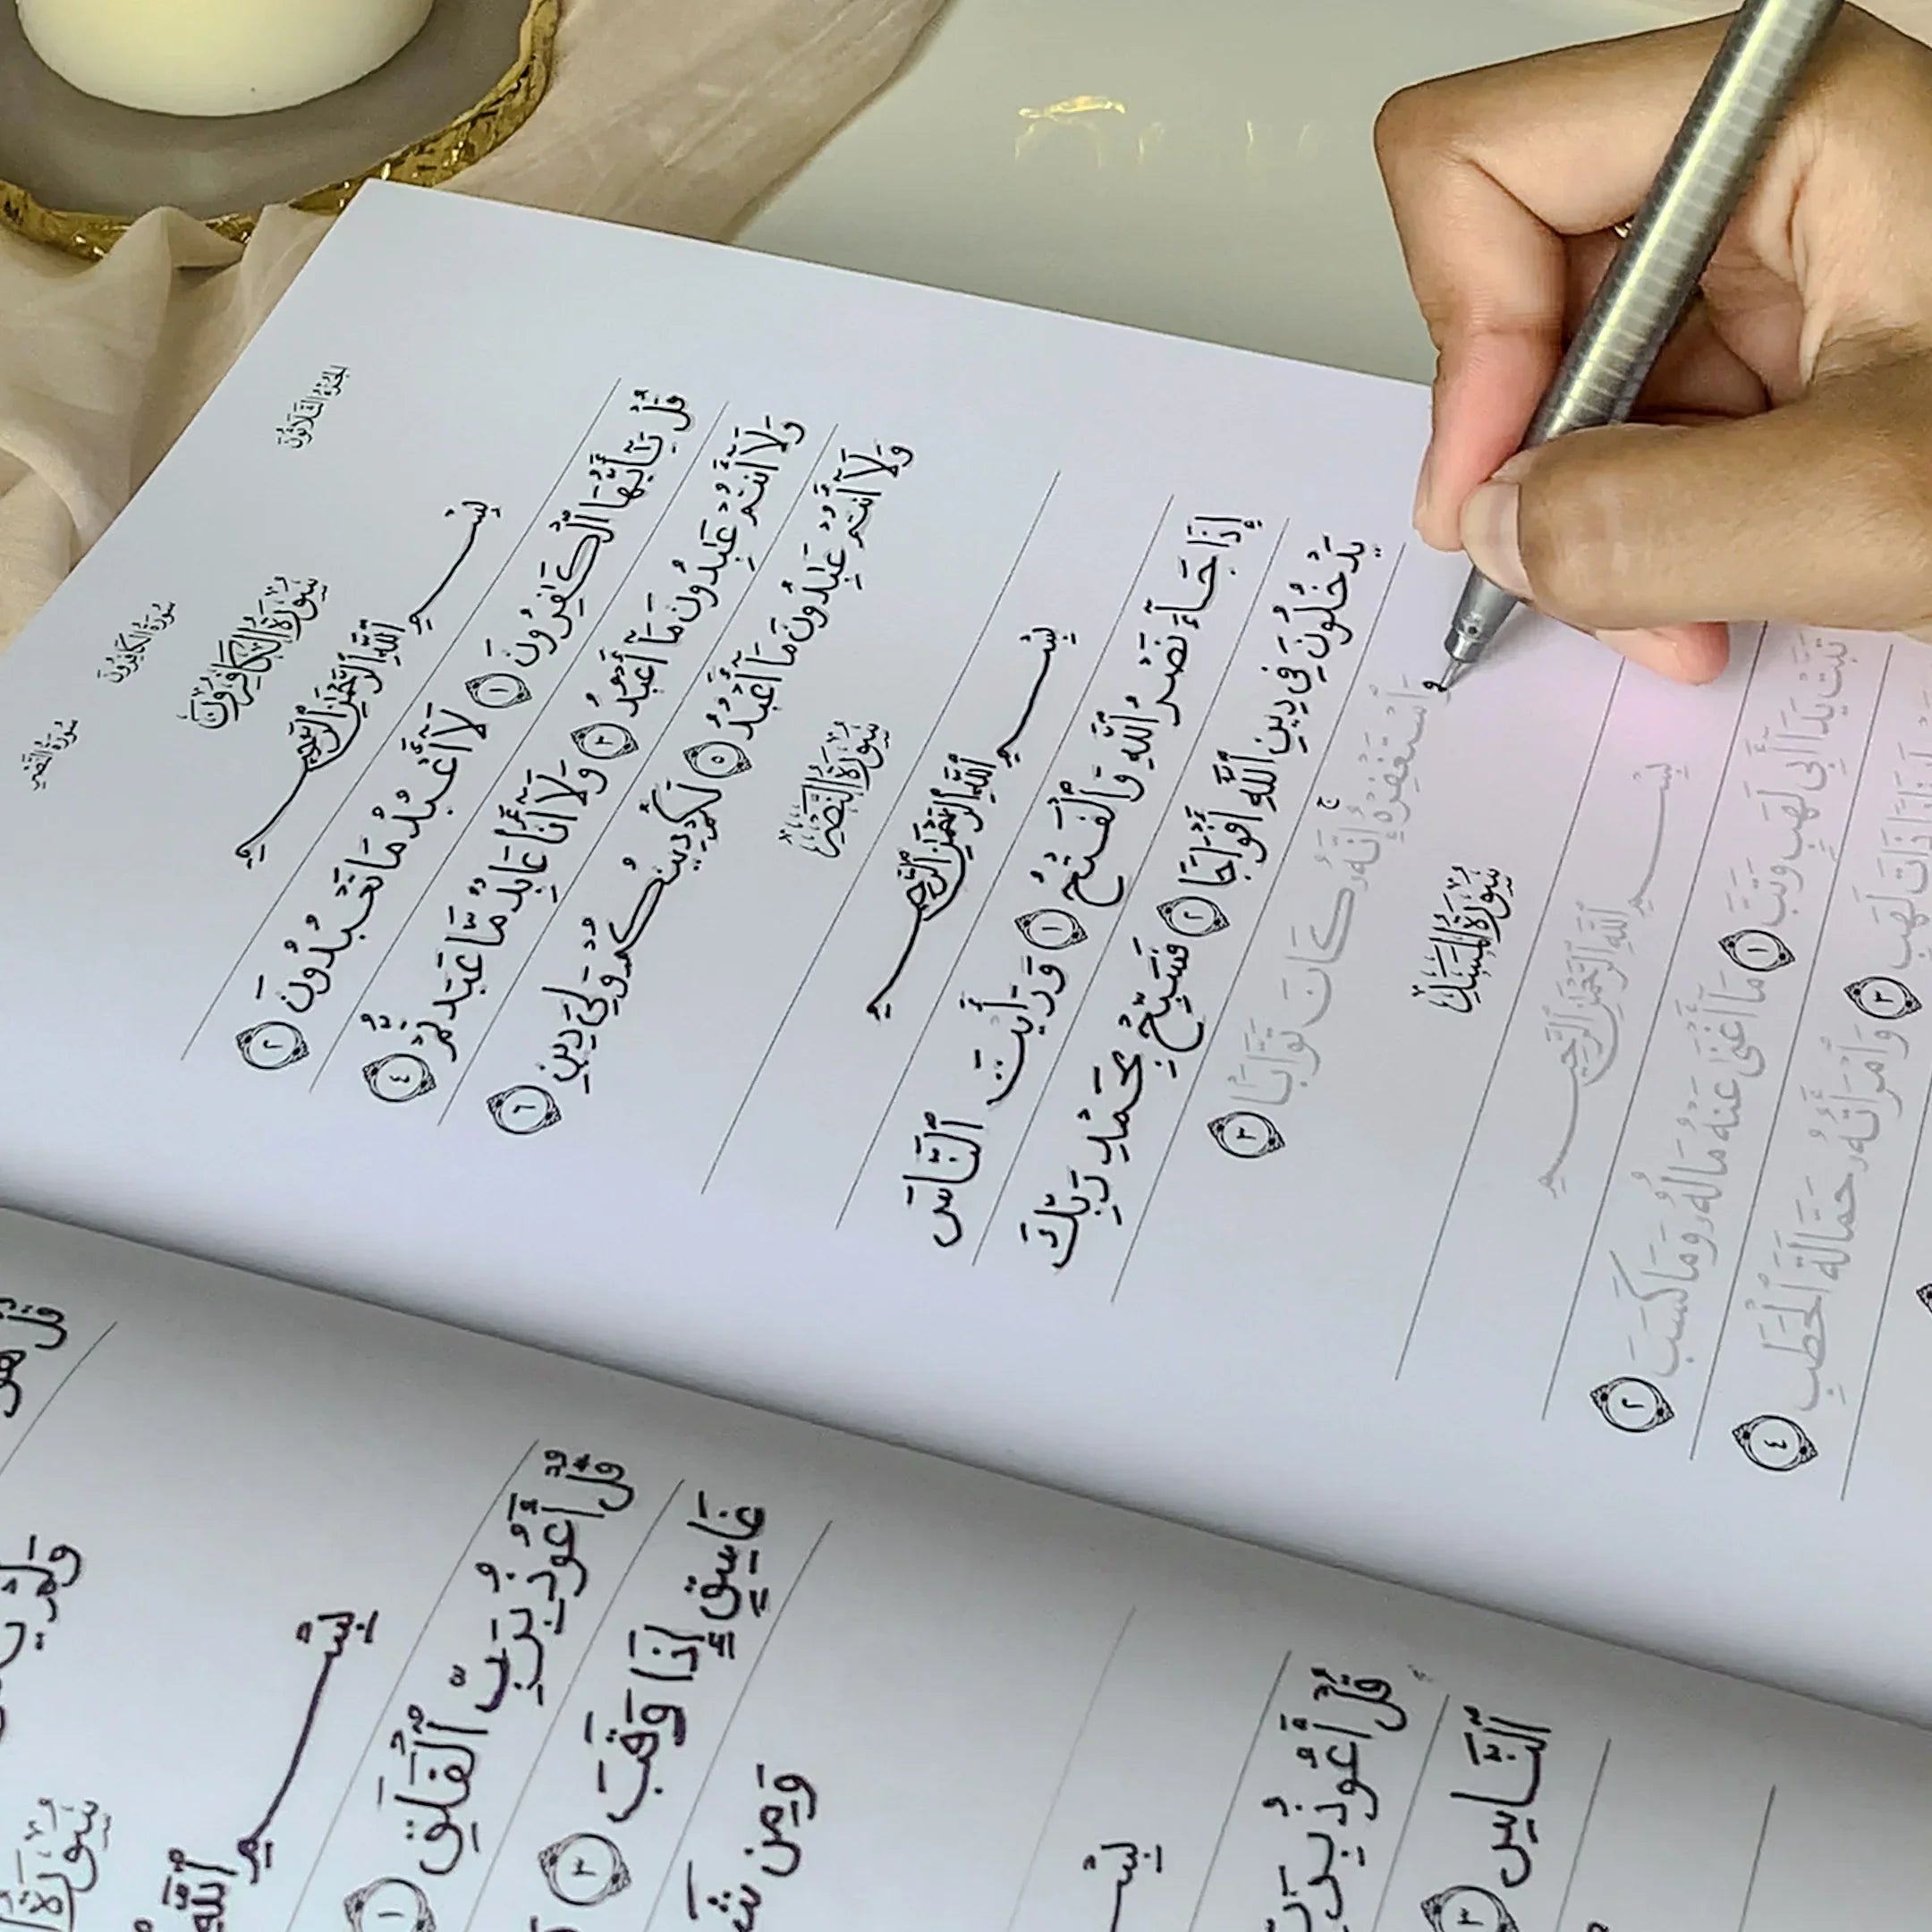 الجُزْءُ الثَّلَاثُونَ
سُورَةُ الكَافِرُونَ
سُورَةُ النَّصْرِ
سُورَةُ الكَافِرُونَ
بِسْمِ ٱللَّهِ ٱلرَّحْمَٰنِ ٱلرَّحِيمِ
قُلْ يَٰٓأَيُّهَا ٱلْكَٰفِرُونَ ١ لَآ أَعْبُدُ مَا تَعْبُدُونَ ٢
وَلَآ أَنتُمْ عَٰبِدُونَ مَآ أَعْبُدُ ٣ وَلَآ أَنَا۠ عَابِدٌ مَّا عَبَدتُّمْ ٤
وَلَآ أَنتُمْ عَٰبِدُونَ مَآ أَعْبُدُ ٥ لَكُمْ دِينُكُمْ وَلِيَ دِينِ ٦
سُورَةُ النَّصْرِ
بِسْمِ ٱللَّهِ ٱلرَّحْمَٰنِ ٱلرَّحِيمِ
إِذَا جَآءَ نَصْرُ ٱللَّهِ وَٱلْفَتْحُ ١ وَرَأَيْتَ ٱلنَّاسَ
يَدْخُلُونَ فِي دِينِ ٱللَّهِ أَفْوَاجًا ٢ فَسَبِّحْ بِحَمْدِ رَبِّكَ
وَٱسْتَغْفِرْهُ ۚ إِنَّهُۥ كَانَ تَوَّابًۢا ٣
سُورَةُ المَسَدِ
بِسْمِ ٱللَّهِ ٱلرَّحْمَٰنِ ٱلرَّحِيمِ
تَبَّتْ يَدَآ أَبِي لَهَبٍ وَتَبَّ ١ مَآ أَغْنَىٰ عَنْهُ مَالُهُۥ وَمَا كَسَبَ ٢
ذَاتَ لَهَبٍ ٣ وَٱمْرَأَتُهُۥ حَمَّالَةَ ٱلْحَطَبِ ٤
قُلْ هُوَ
سُورَةُ
بِسْمِ ٱللَّهِ
قُلْ أَعُوذُ بِرَبِّ ٱلْفَلَقِ ١
غَاسِقٍ إِذَا وَقَبَ ٣
وَمِن
بِسْمِ
قُلْ أَعُوذُ بِرَبِّ
ٱلنَّاسِ ٣